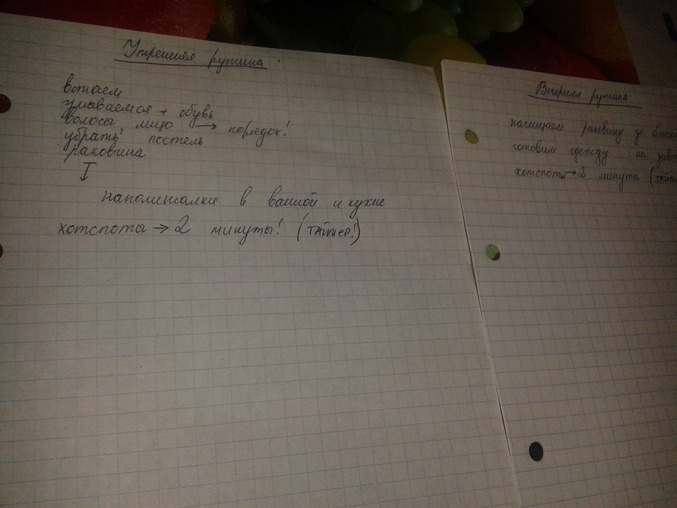 Утренняя рутина
встаем
умываемся + обувь
волосы лицо → порядок!
убрать постель
раковина
напоминалки в ванной и кухне
хотспоты → 2 минуты! (ТАЙМЕР!)
Вечерняя рутина
начищаем раковину до блеска
готовим одежду на
хотспоты → 2 минуты (